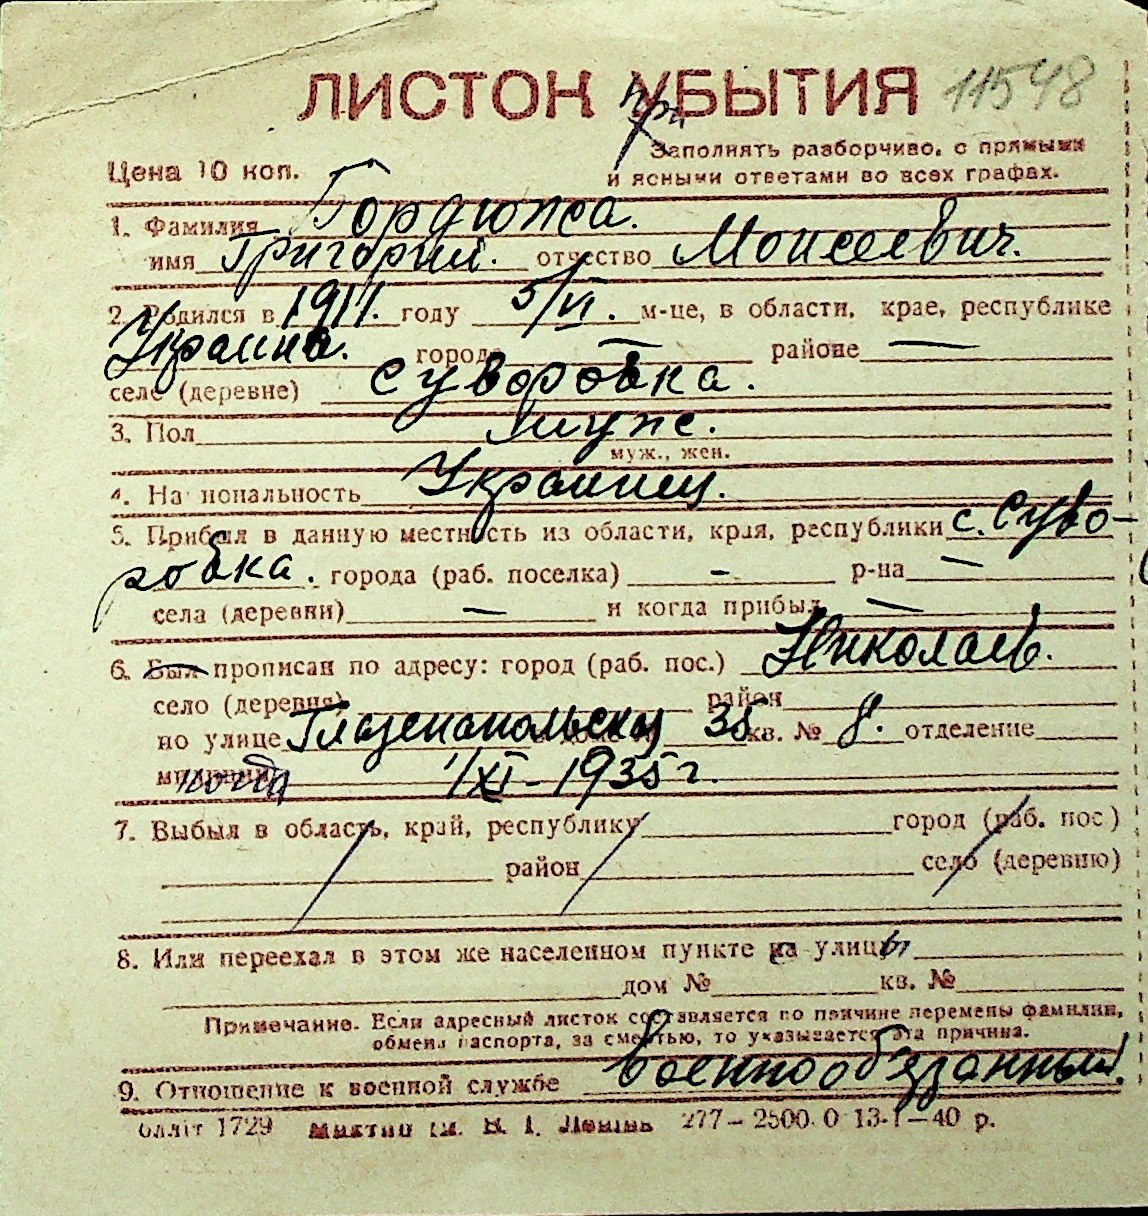 11548
ЛИСТОК УБЫТИЯ
при
Заполнять разборчиво, с прямыми
Цена 10 коп.
и ясными ответами во всех графах.
1. Фамилия Гордюжа.
имя Григорий. отчество Моисеевич.
2. Родился в 1911. году 5/VI. м-це, в области, крае, республике
Украина. городе — районе —
селе (деревне) Суворовка.
3. Пол муж.
муж., жен.
4. Национальность Украинец.
5. Прибыл в данную местность из области, края, республики с. Суво-
ровка. города (раб. поселка) - р-на —
села (деревни) — и когда прибыл —
6. Был прописан по адресу: город (раб. пос.) Николаев.
село (деревня) район
по улице Глазенапольской 35 кв. № 8. отделение
милиции когда 1/XI-1935 г.
7. Выбыл в область, край, республику город (раб. пос)
район село (деревню)
8. Или переехал в этом же населенном пункте на улицы
дом № кв. №
Примечание. Если адресный листок составляется по причине перемены фамилии,
обмена паспорта, за смертью, то указывается эта причина.
9. Отношение к военной службе Военнообязанный.
1729 277 – 2500.0 13-I–40 р.